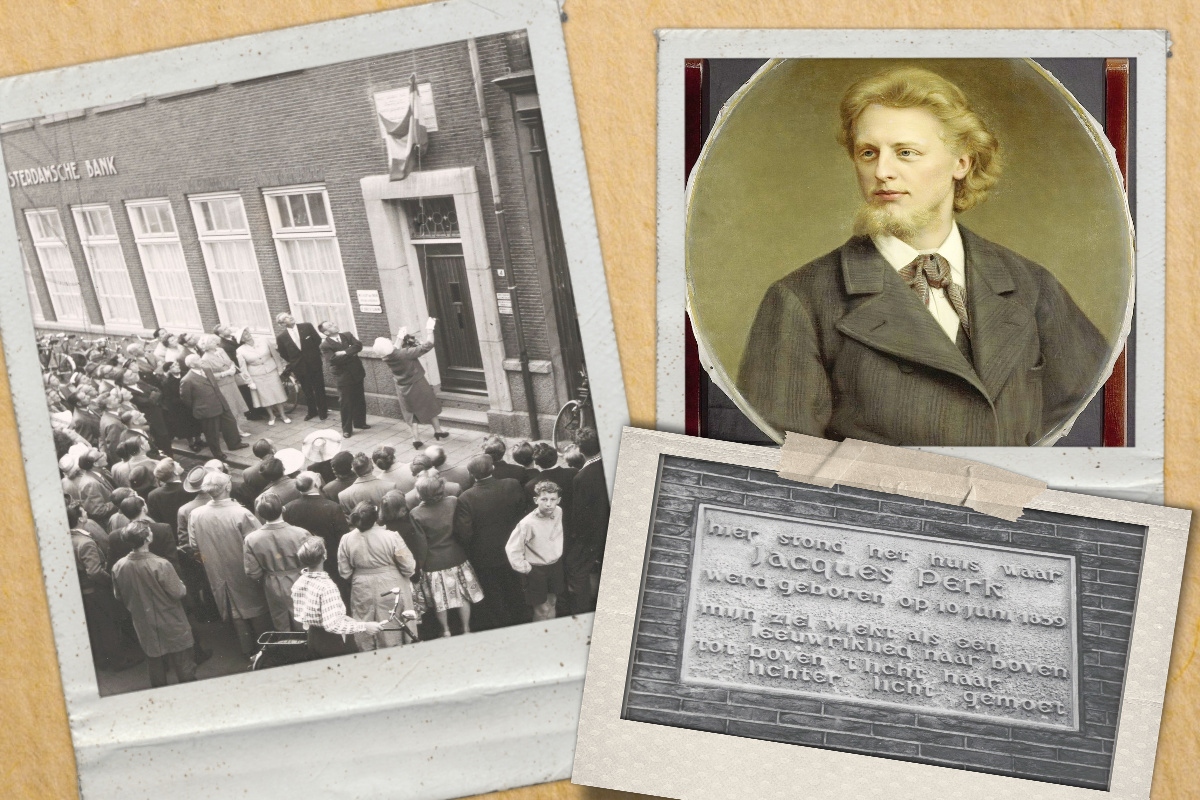 STERDAMSCHE BANK
hier stond het huis waar
jacques perk
werd geboren op 10 juni 1859
mijn ziel wiekt als een
leeuwriklied naar boven
tot boven 't licht naar
lichter licht gemoet